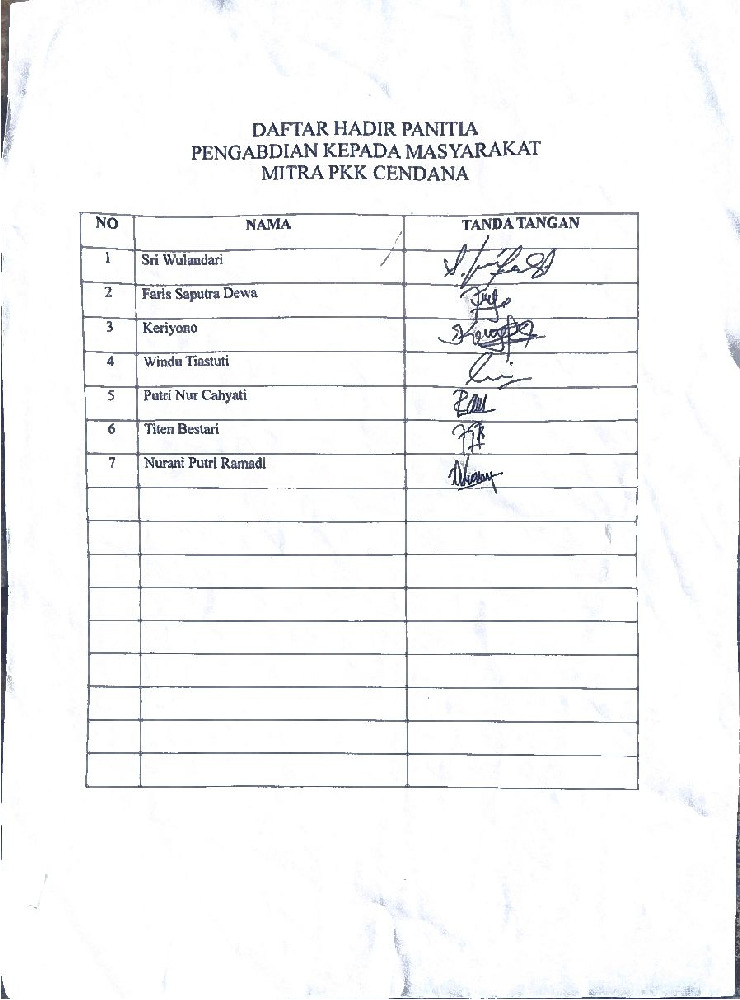 DAFTAR HADIR PANITIA
PENGABDIAN KEPADA MASYARAKAT
MITRA PKK CENDANA
NO NAMA TANDA TANGAN
1 Sri Wulandari
2 Faris Saputra Dewa
3 Keriyono
4 Windu Tiastuti
5 Putri Nur Cahyati
6 Titen Bestari
7 Nurani Putri Ramadi